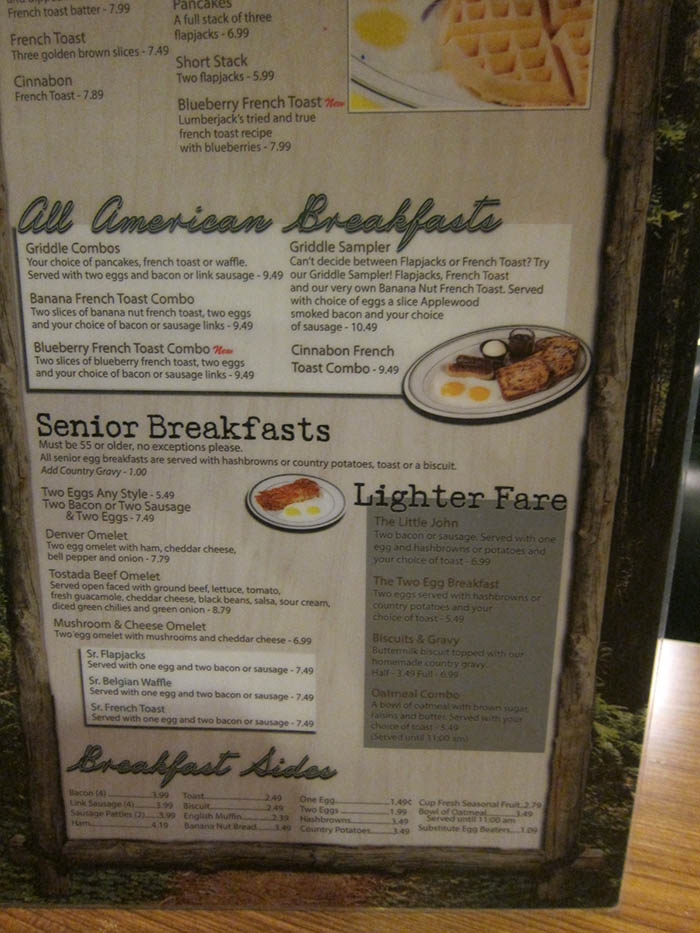 French toast batter - 7.99
French Toast
Three golden brown slices - 7.49
Cinnabon
French Toast - 7.89
Pancakes
A full stack of three
flapjacks - 6.99
Short Stack
Two flapjacks - 5.99
Blueberry French Toast New
Lumberjack's tried and true
french toast recipe
with blueberries - 7.99
All American Breakfasts
Griddle Combos
Your choice of pancakes, french toast or waffle.
Served with two eggs and bacon or link sausage - 9.49
Banana French Toast Combo
Two slices of banana nut french toast, two eggs
and your choice of bacon or sausage links - 9.49
Blueberry French Toast Combo New
Two slices of blueberry french toast, two eggs
and your choice of bacon or sausage links - 9.49
Griddle Sampler
Can't decide between Flapjacks or French Toast? Try
our Griddle Sampler! Flapjacks, French Toast
and our very own Banana Nut French Toast. Served
with choice of eggs a slice Applewood
smoked bacon and your choice
of sausage - 10.49
Cinnabon French
Toast Combo - 9.49
Senior Breakfasts
Must be 55 or older, no exceptions please.
All senior egg breakfasts are served with hashbrowns or country potatoes, toast or a biscuit.
Add Country Gravy - 1.00
Two Eggs Any Style - 5.49
Two Bacon or Two Sausage
& Two Eggs - 7.49
Denver Omelet
Two egg omelet with ham, cheddar cheese,
bell pepper and onion - 7.79
Tostada Beef Omelet
Served open faced with ground beef, lettuce, tomato,
fresh guacamole, cheddar cheese, black beans, salsa, sour cream,
diced green chilies and green onion - 8.79
Mushroom & Cheese Omelet
Two egg omelet with mushrooms and cheddar cheese - 6.99
Sr. Flapjacks
Served with one egg and two bacon or sausage - 7.49
Sr. Belgian Waffle
Served with one egg and two bacon or sausage - 7.49
Sr. French Toast
Served with one egg and two bacon or sausage - 7.49
Lighter Fare
The Little John
Two bacon or sausage. Served with one
egg and hashbrowns or potatoes and
your choice of toast - 6.99
The Two Egg Breakfast
Two eggs served with hashbrowns or
country potatoes and your
choice of toast - 5.49
Biscuits & Gravy
Buttermilk biscuit topped with our
homemade country gravy.
Half - 3.49 Full - 6.99
Oatmeal Combo
A bowl of oatmeal with brown sugar,
raisins and butter. Served with your
choice of toast - 5.49
(Served until 11:00 am)
Breakfast Sides
Bacon (4) 3.99
Link Sausage (4) 3.99
Sausage Patties (2) 3.99
Ham 4.19
Toast 2.49
Biscuit 2.49
English Muffin 2.39
Banana Nut Bread 3.49
One Egg 1.49¢
Two Eggs 1.99
Hashbrowns 3.49
Country Potatoes 3.49
Cup Fresh Seasonal Fruit 2.79
Bowl of Oatmeal 3.49
Served until 11:00 am
Substitute Egg Beaters 1.09